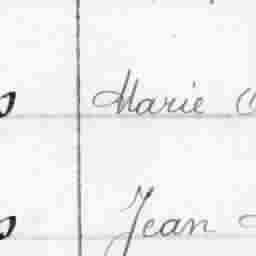 Marie
Jean